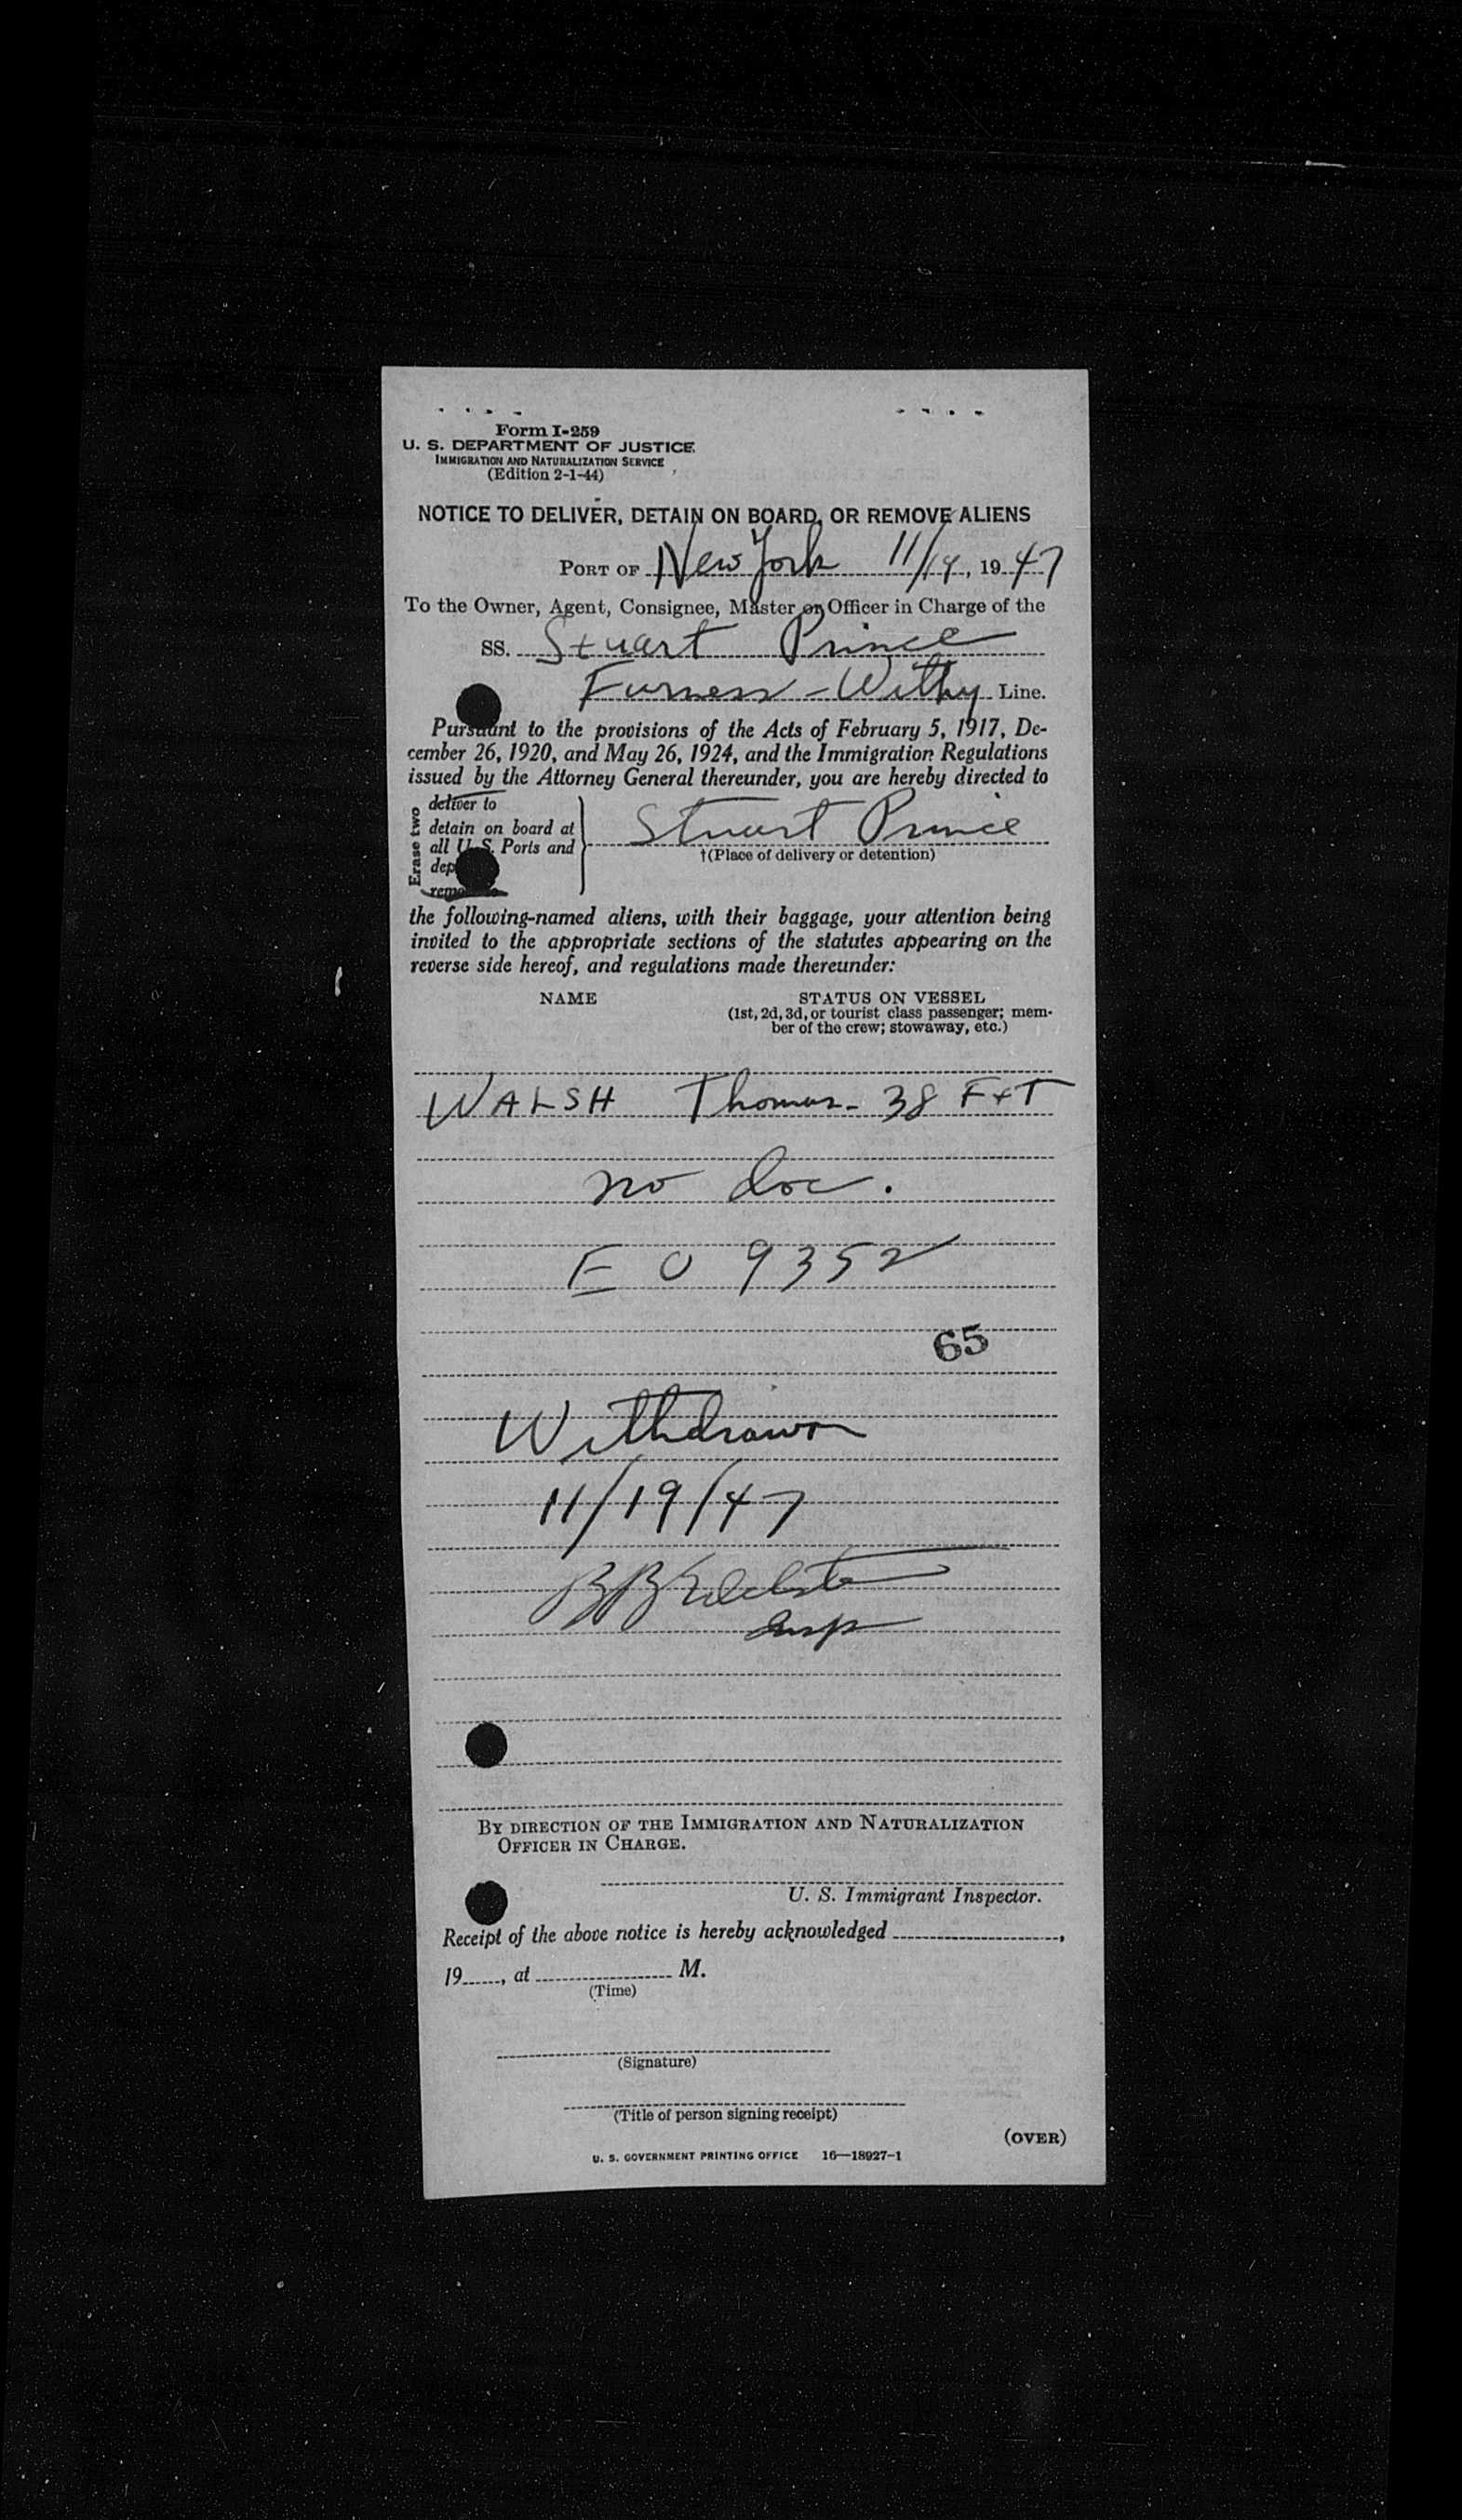 Form I-259
U. S. DEPARTMENT OF JUSTICE
IMMIGRATION AND NATURALIZATION SERVICE
(Edition 2-1-44)
NOTICE TO DELIVER, DETAIN ON BOARD, OR REMOVE ALIENS
PORT OF New York 11/19, 1947
To the Owner, Agent, Consignee, Master or Officer in Charge of the
SS. Stuart Prince
Furness-Withy Line.
Pursuant to the provisions of the Acts of February 5, 1917, De-
cember 26, 1920, and May 26, 1924, and the Immigration Regulations
issued by the Attorney General thereunder, you are hereby directed to
Erase two
deliver to
detain on board at
all U. S. Ports and
Stuart Prince
†(Place of delivery or detention)
the following-named aliens, with their baggage, your attention being
invited to the appropriate sections of the statutes appearing on the
reverse side hereof, and regulations made thereunder:
NAME STATUS ON VESSEL
(1st, 2d, 3d, or tourist class passenger; mem-
ber of the crew; stowaway, etc.)
WALSH Thomas - 38 F+T
no doc.
E O 9352
65
Withdrawn
11/19/47
Insp
BY DIRECTION OF THE IMMIGRATION AND NATURALIZATION
OFFICER IN CHARGE.
U. S. Immigrant Inspector.
Receipt of the above notice is hereby acknowledged ,
19 , at M.
(Time)
(Signature)
(Title of person signing receipt)
(OVER)
U. S. GOVERNMENT PRINTING OFFICE 16—18927-1